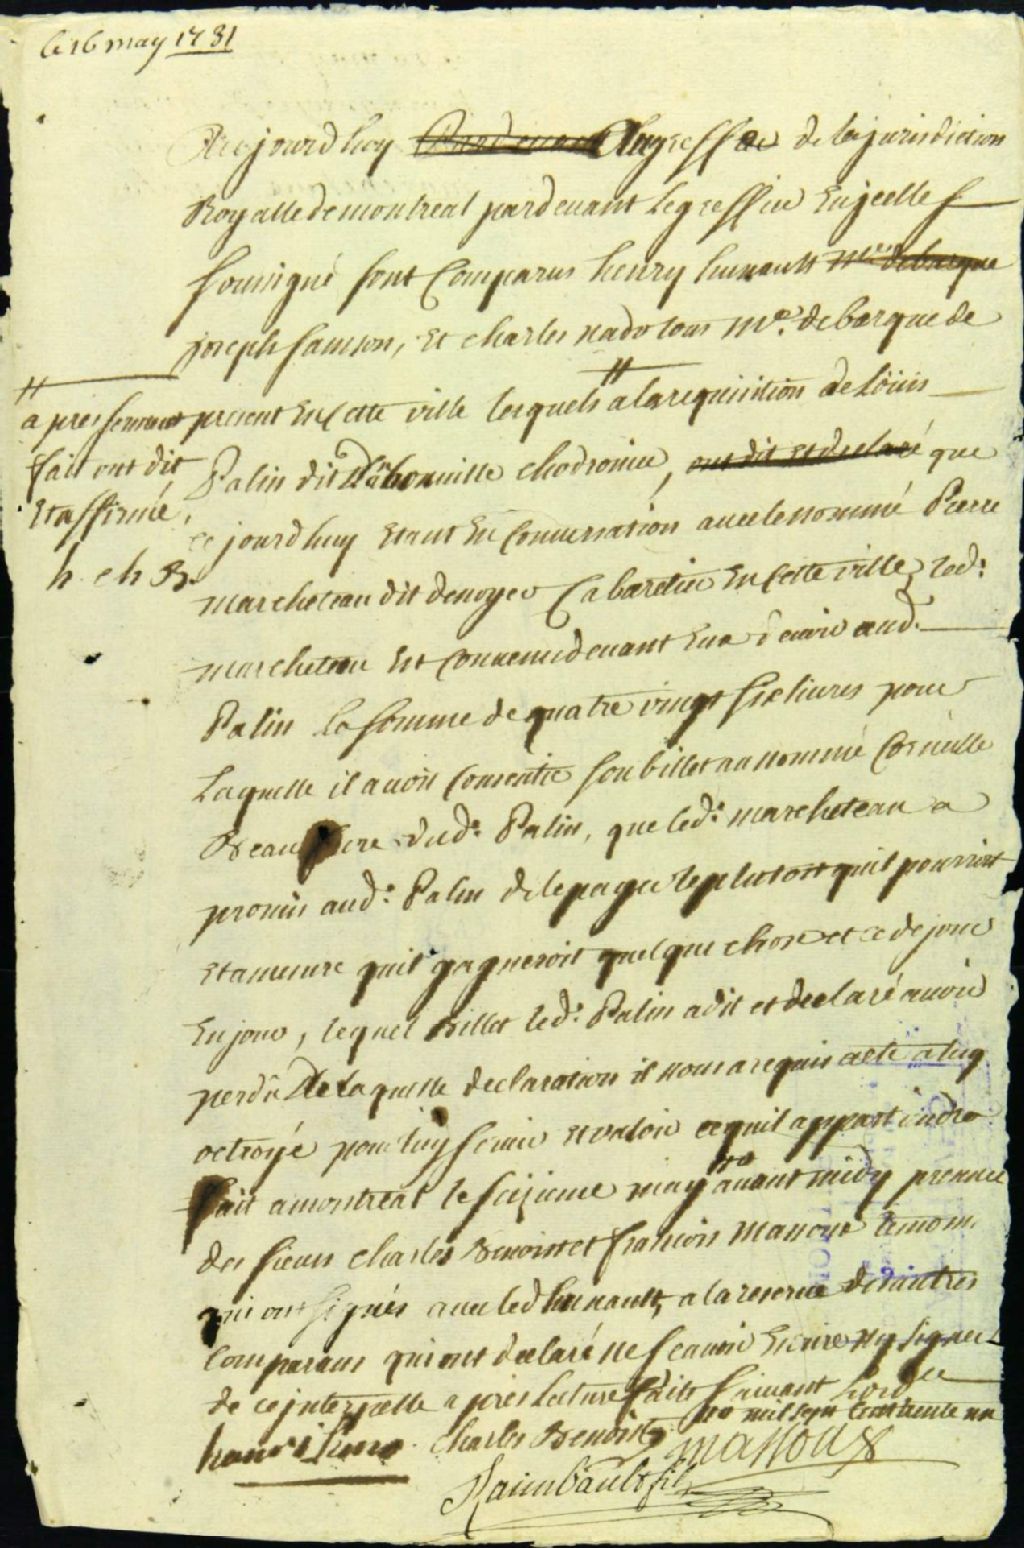 le 16 may 1731
Aujourd'huy Pardevant Au greffe de la jurisdiction
Royalle de montreal pardevant le greffier en jcelle
sousigné sont Comparus henry hunault Me. de barque
joseph Samson, et charles nado tous Me. de barque de
present en Cette ville lesquels // a la requisition de Loüis
//
apres serment
fait ont dit
et affirmé,
h. ch R.
Palin dit Dabonville chodronier, ont dit et declaré que
ce jourd'huy etant En Conversation avec le nommé Pierre
marcheteau dit denoyer Cabaretier En Cette ville, led:
marcheteau Est Convenu devant Eux devoir aud.
Palin la somme de quatre vingt six livres pour
laquelle il avoit Consentie son billet au nommé Corneille
Beau dud: Palin, que led: marcheteau a
promis aud: Palin de le payer le plutost quil pourroit
et a mesure quil gagneroit quelque chose et ce de jour
en jour, lequel billet led: Palin a dit et declaré avoir
perdu De Laquelle declaration il nous a requis acte a luy
octroyé pour luy servir et valoir ce quil appartiendra
fait a montreal le seizieme may avant midy presence
des sieurs charles Benoist et françois Massoux temoins
qui ont signés avec led hunault, a la reserve des autres
Comparans qui ont declaré ne scavoir Ecrire ny signer
de ce jnterpellé apres lecture faite suivant Lordce
mil sept cent trente un
Charles Benoist massoux
Raimbault fils